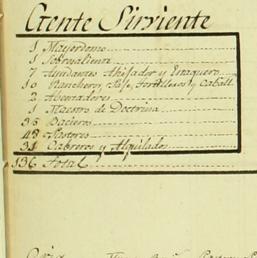 Gente Sirviente
1 Mayordomo
1 Sobresaliente
7 Ayudantes Ahijador y Estaquero
10 Rancheros y
2 Aventadores
1 Maestro de Doctrina
35 Bacieros
48 Pastores
31 Cabreros y Alquilados
136 Total